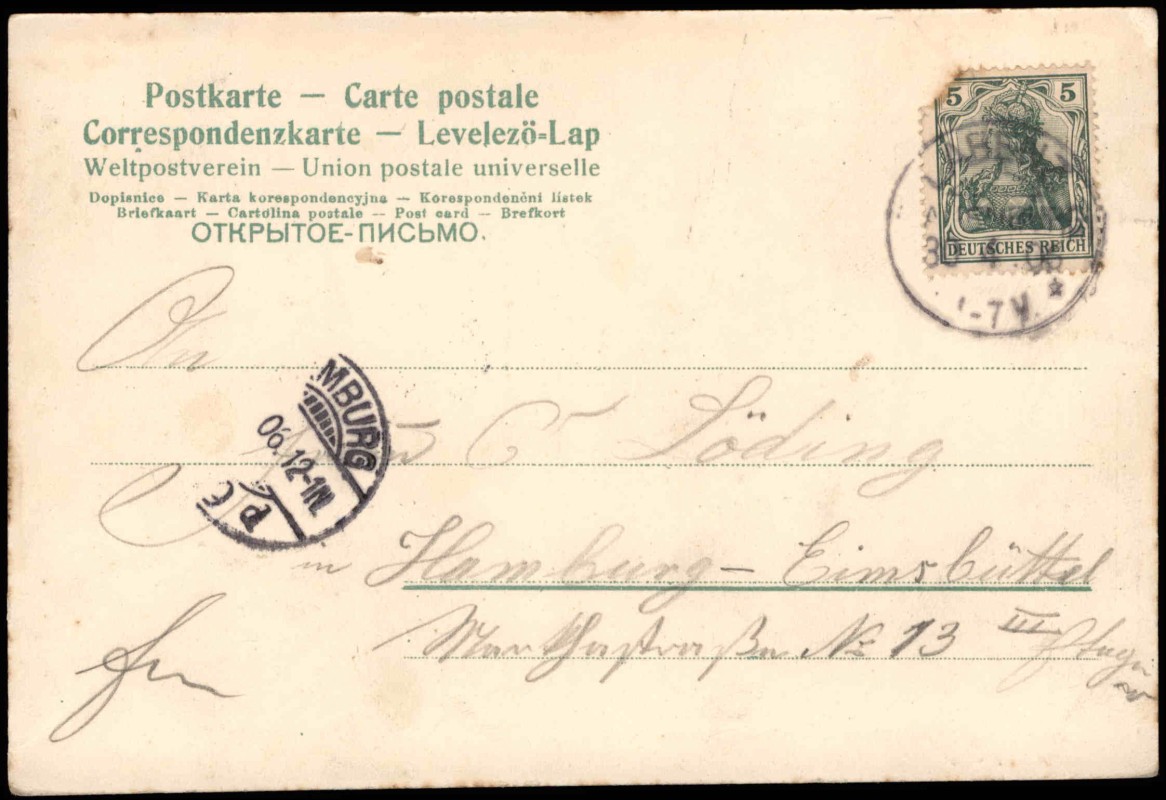 Postkarte — Carte postale
Correspondenzkarte — Levelező-Lap
Weltpostverein — Union postale universelle
Dopisnice — Karta korespondencyjna — Korespondenční lístek
Briefkaart — Cartolina postale — Post card — Brefkort
ОТКРЫТОЕ-ПИСЬМО.
5 5
DEUTSCHES REICH
-7 V. *
An
MBURG
06.12-1N.
C Löding
in Hamburg - Eimsbüttel
Marthastraße No 13 III Etage